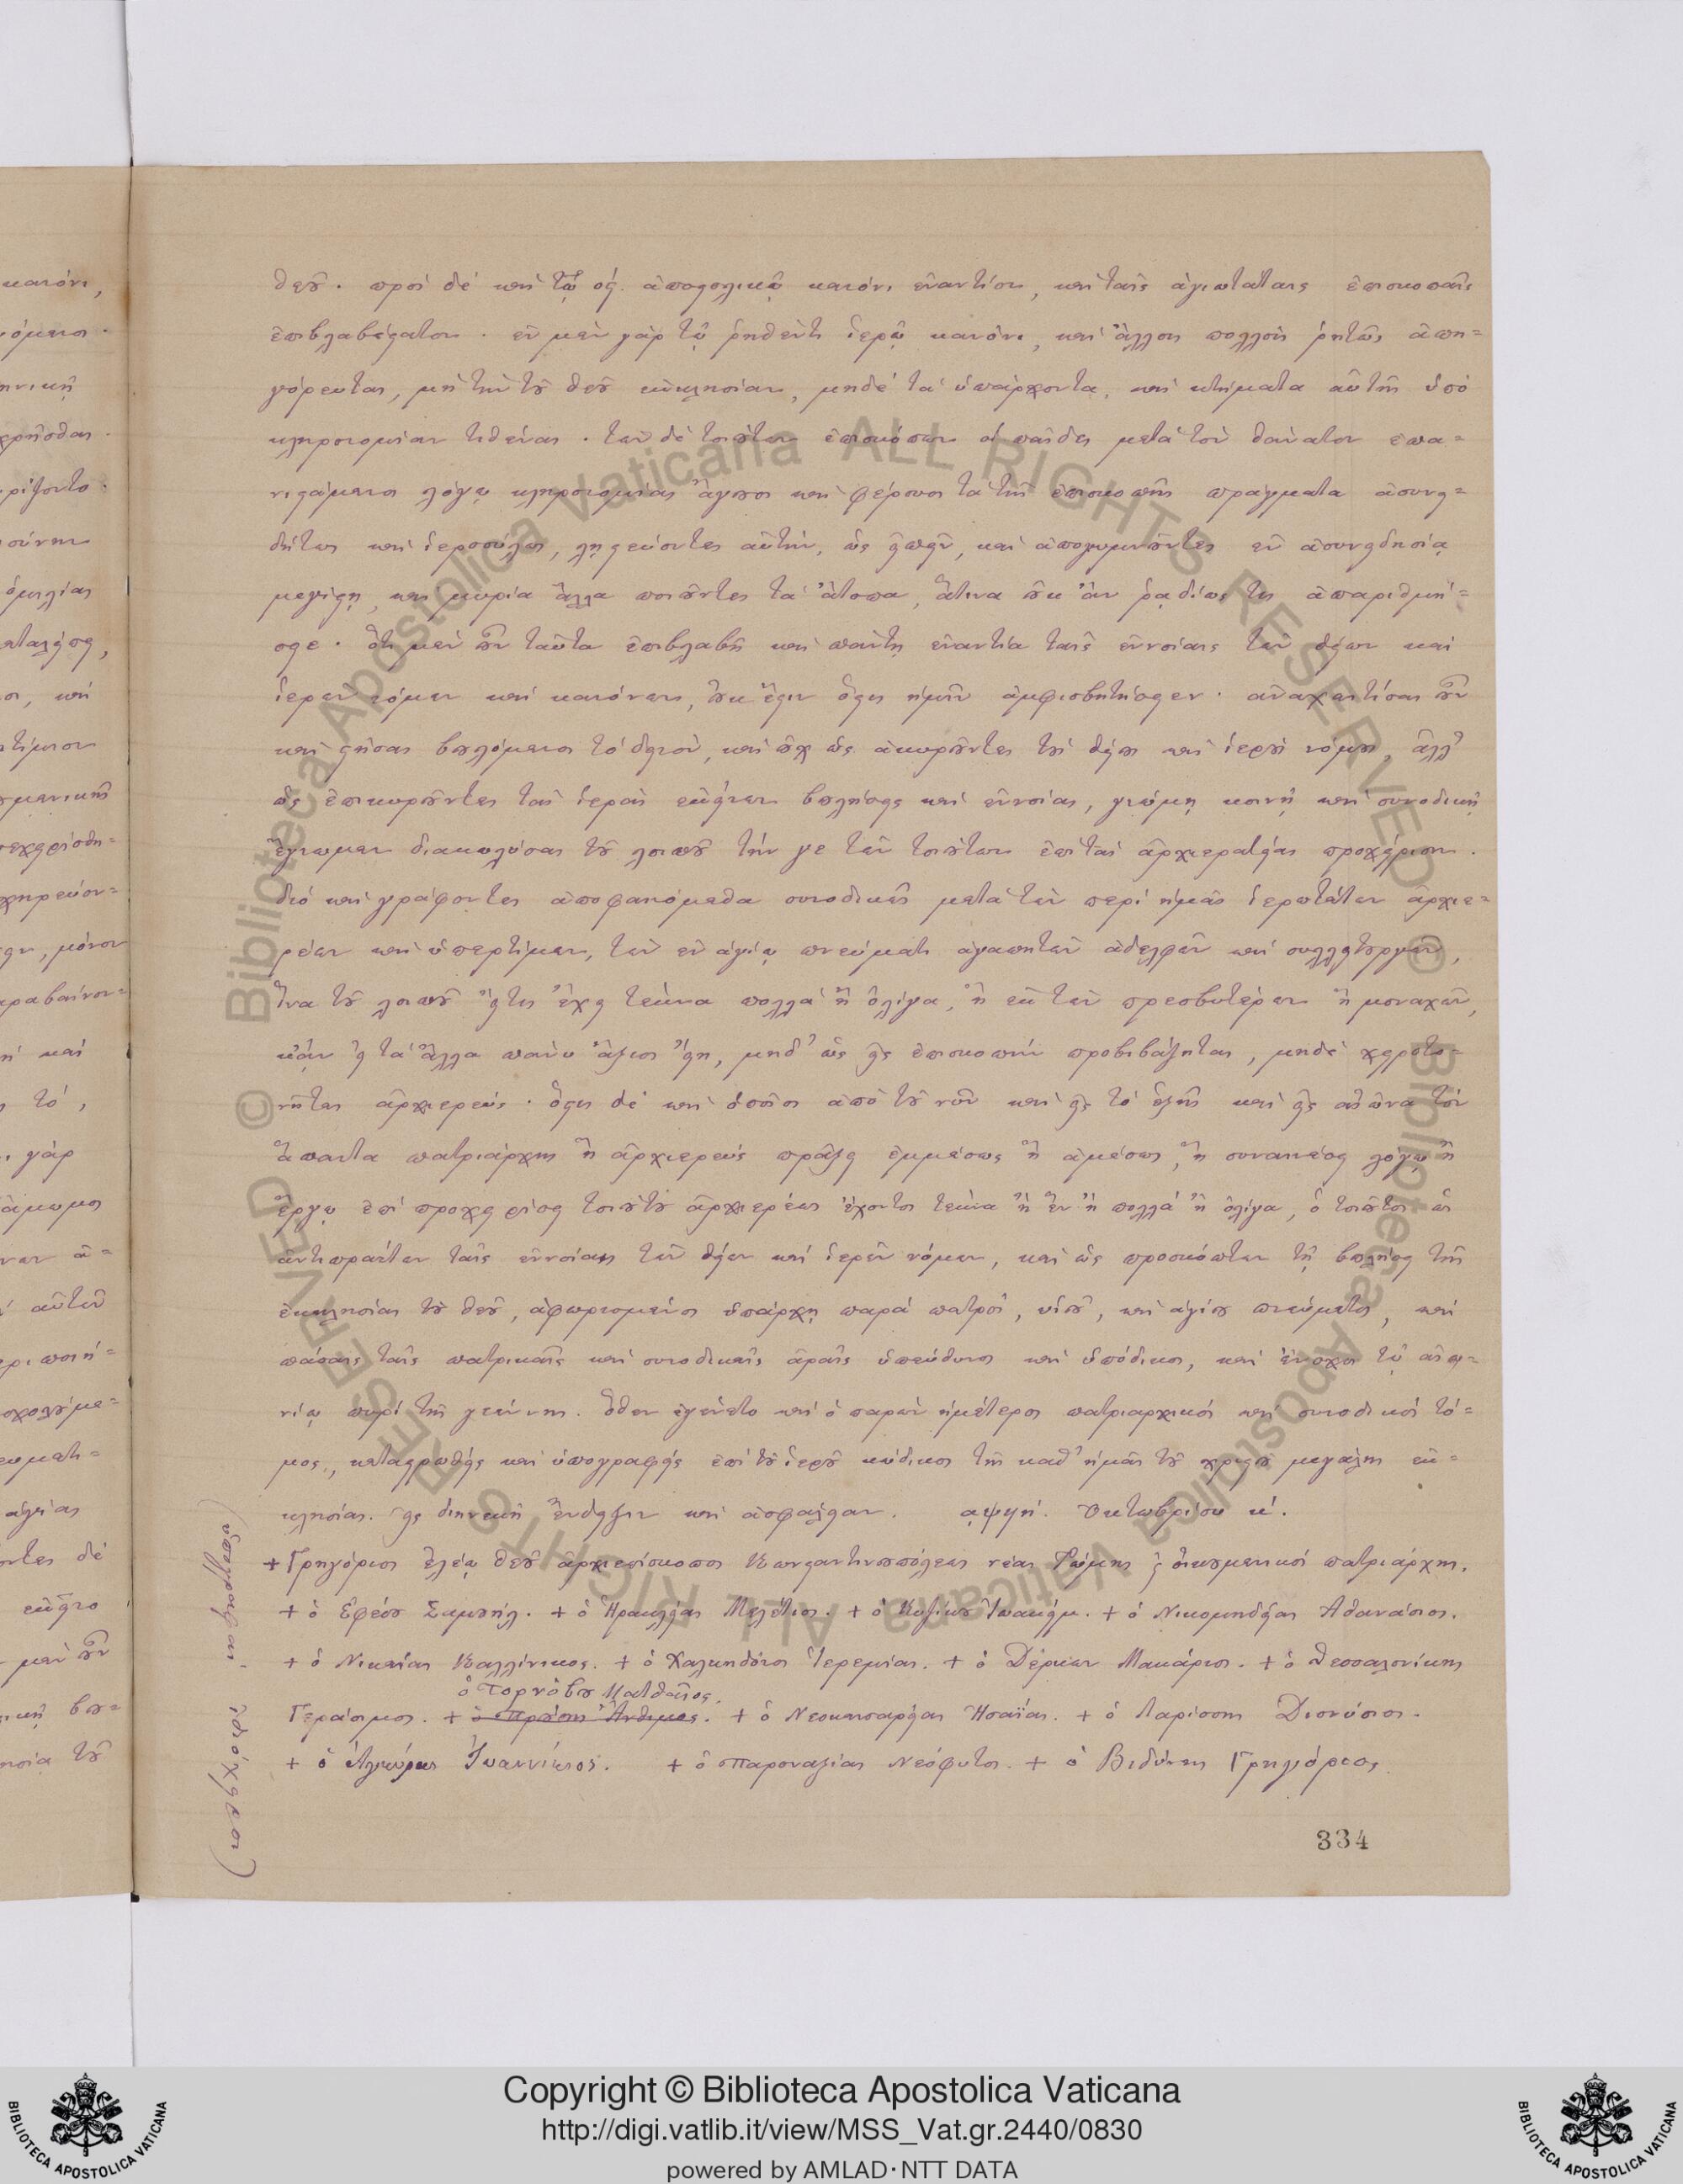 θεοῦ. πρὸς δὲ καὶ τῷ ος΄. ἀποστολικῷ κανόνι ἐναντίον, καὶ ταῖς ἁγιωτάταις ἐπισκοπαῖς
ἐπιβλαβέστατον. ἐν μὲν γὰρ τῷ ῥηθέντι ἱερῷ κανόνι, καὶ ἄλλοις πολλοῖς ῥητῶς ἀπη=
γόρευται, μὴ τὴν τοῦ θεοῦ ἐκκλησίαν, μηδὲ τὰ ὑπάρχοντα, καὶ κτήματα αὐτῆς ὑπὸ
κληρονομίαν τιθέναι. τῶν δὲ τοιούτων ἐπισκόπων οἱ παῖδες μετὰ τὸν θάνατον ἐπα=
νιστάμενοι λόγῳ κληρονομίας ἄγουσι καὶ φέρουσι τὰ τῆς ἐπισκοπῆς πράγματα ἀσυνει=
δήτως καὶ ἱεροσύλως, λῃστεύοντες αὐτὴν, ὡς εἰπεῖν, καὶ ἀπογυμνοῦντες ἐν ἀσυνειδησίᾳ
μεγίστῃ, καὶ μυρία ἄλλα ποιοῦντες τὰ ἄτοπα, ἅτινα οὐκ ἂν ῥᾳδίως τις ἀπαριθμή=
σειε. ὅτι μὲν οὖν ταῦτα ἐπιβλαβῆ καὶ πάντη ἐναντία ταῖς ἐννοίαις τῶν θείων καὶ
ἱερῶν νόμων καὶ κανόνων, οὐκ ἔστιν ὅστις ἡμῖν ἀμφισβητήσειεν. ἀναχαιτίσαι οὖν
καὶ στῆσαι βουλόμενοι τὸ δεινὸν, καὶ οὐχ ὡς ἀκυροῦντες τοὺς θείους καὶ ἱεροὺς νόμους, ἀλλ'
ὡς ἐπικυροῦντες τὰς ἱερὰς ἐκείνων βουλήσεις καὶ ἐννοίας, γνώμῃ κοινῇ καὶ συνοδικῇ
ἔγνωμεν διακωλῦσαι τοῦ λοιποῦ τήν γε τῶν τοιούτων ἐπὶ τὰς ἀρχιερατείας προχείρισιν.
διὸ καὶ γράφοντες ἀποφαινόμεθα συνοδικῶς μετὰ τῶν περὶ ἡμᾶς ἱερωτάτων ἀρχιε=
ρέων καὶ ὑπερτίμων, τῶν ἐν ἁγίῳ πνεύματι ἀγαπητῶν ἀδελφῶν καὶ συλλειτουργῶν,
ἵνα τοῦ λοιποῦ εἴ τις ἔχει τέκνα πολλὰ ἢ ὀλίγα, ἢ ἐκ τῶν πρεσβυτέρων ἢ μοναχῶν,
κἂν εἰ τὰ ἄλλα πάνυ ἄξιος εἴη, μηδ' ὡς εἰς ἐπισκοπὴν προβιβάζηται, μηδὲ χειροτο=
νῆται ἀρχιερεύς. ὅστις δὲ καὶ ὁποῖος ἀπὸ τοῦ νῦν καὶ εἰς τὸ ἑξῆς καὶ εἰς αἰῶνα τὸν
ἅπαντα πατριάρχης ἢ ἀρχιερεὺς πράξει ἐμμέσως ἢ ἀμέσως, ἢ συναινέσει λόγῳ ἢ
ἔργῳ ἐπὶ προχειρίσει τοιούτου ἀρχιερέως ἔχοντος τέκνα ἢ ἓν ἢ πολλὰ ἢ ὀλίγα, ὁ τοιοῦτος ὡς
ἀντιπράττων ταῖς ἐννοίαις τῶν θείων καὶ ἱερῶν νόμων, καὶ ὡς προσκόπτων τῇ βουλήσει τῆς
ἐκκλησίας τοῦ θεοῦ, ἀφωρισμένος ὑπάρχῃ παρὰ πατρὸς, υἱοῦ, καὶ ἁγίου πνεύματος, καὶ
πάσαις ταῖς πατρικαῖς καὶ συνοδικαῖς ἀραῖς ὑπεύθυνος καὶ ὑπόδικος, καὶ ἔνοχος τῷ αἰω=
νίῳ πυρὶ τῆς γεέννης. ὅθεν ἐγένετο καὶ ὁ παρὼν ἡμέτερος πατριαρχικὸς καὶ συνοδικὸς τό=
μος, καταστρωθεὶς καὶ ὑπογραφεὶς ἐπὶ τοῦ ἱεροῦ κώδικος τῆς καθ' ἡμᾶς τοῦ χριστοῦ μεγάλης ἐκ=
κλησίας. εἰς διηνεκῆ ἔνδειξιν καὶ ἀσφάλειαν. αψϟή. Ὀκτωβρίου κ΄.
+ Γρηγόριος ἐλέῳ θεοῦ ἀρχιεπίσκοπος Κωνσταντινουπόλεως νέας Ῥώμης καὶ οἰκουμενικὸς πατριάρχης.
+ ὁ Ἐφέσου Σαμουήλ. + ὁ Ἡρακλείας Μελέτιος. + ὁ Κυζίκου Ἰωακείμ. + ὁ Νικομηδείας Ἀθανάσιος.
+ ὁ Νικαίας Καλλίνικος. + ὁ Χαλκηδόνος Ἱερεμίας. + ὁ Δέρκων Μακάριος. + ὁ Θεσσαλονίκης
ὁ Τορνόβου Ματθαῖος.
Γεράσιμος. + ὁ Προύσης Ἄνθιμος. + ὁ Νεοκαισαρείας Ἡσαΐας. + ὁ Λαρίσσης Διονύσιος.
+ ὁ Ἀγκύρας Ἰωαννίκιος. + ὁ Παροναξίας Νεόφυτος. + ὁ Βιδύνης Γρηγόριος.
334
Copyright © Biblioteca Apostolica Vaticana
http://digi.vatlib.it/view/MSS_Vat.gr.2440/0830
powered by AMLAD·NTT DATA